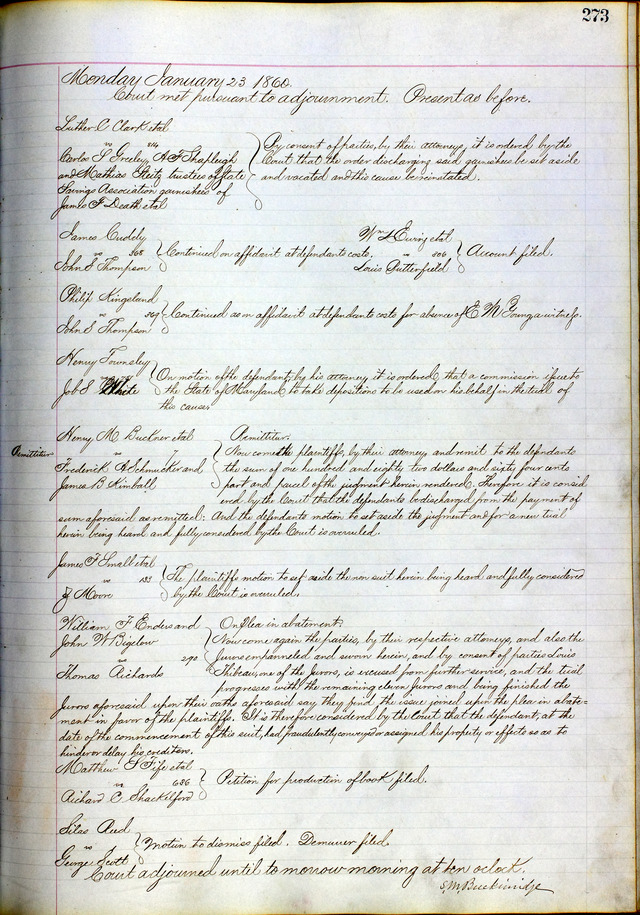 273
Monday January 23 1860.
Court met pursuant to adjournment. Present as before.
Luther C Clark etal
vs 814
Carlos S Greeley, A F Shapleigh
and Mathias Steitz, trustees of State
Savings Association garnishees of
James F Death etal
By consent of parties, by their attorneys, it is ordered by the
Court that the order discharging said garnishees be set aside
and vacated and this cause be reinstated.
James Cuddy
vs 268
John S Thompson
Continued on affidavit at defendants costs.
Wm L Ewing etal
vs 506
Louis Butterfield
Account filed.
Philip Kingsland
vs 269
John S Thompson
Continued as on affidavit at defendants costs for absence of E M Young a witness.
Henry Townsley
vs
Job S White
On motion of the defendant, by his attorney, it is ordered, that a commission issue to
the State of Maryland to take depositions to be used on his behalf in the trial of
this cause.
Remittitur
Henry M Buckner etal
vs 7
Frederick A Schmucker and
James B Kimball
Remittitur.
Now come the plaintiffs, by their attorney and remit to the defendants
the sum of one hundred and eighty two dollars and sixty four cents
part and parcel of the judgment herein rendered. Therefore it is consid
ered by the Court that the defendants be discharged from the payment of
sum aforesaid as remitted. And the defendants motion to set aside the judgment and for a new trial
herein being heard and fully considered by the Court is overruled.
James F Small etal
vs 133
J Moore
The plaintiffs motion to set aside the non suit herein being heard and fully considered
by the Court is overruled.
William F Enders and
John W Bigelow
vs 290
Thomas Richards
On Plea in abatement.
Now come again the parties, by their respective attorneys, and also the
Jurors empanneled and sworn herein, and by consent of parties Louis
Thibeau, one of the Jurors, is excused from further service, and the trial
progresses with the remaining eleven Jurors and being finished the
Jurors aforesaid upon their oaths aforesaid say they find the issue joined upon the plea in abate-
ment in favor of the plaintiffs. It is therefore considered by the Court that the defendant, at the
date of the commencement of this suit, had fraudulently conveyed or assigned his property or effects so as to
hinder or delay his creditors.
Matthew S Fife etal
vs 686
Richard C Shackelford
Petition for production of book filed.
Silas Reed
vs
George Scott
Motion to dismiss filed. Demurrer filed.
Court adjourned until tomorrow morning at ten oclock.
S. M. Breckinridge